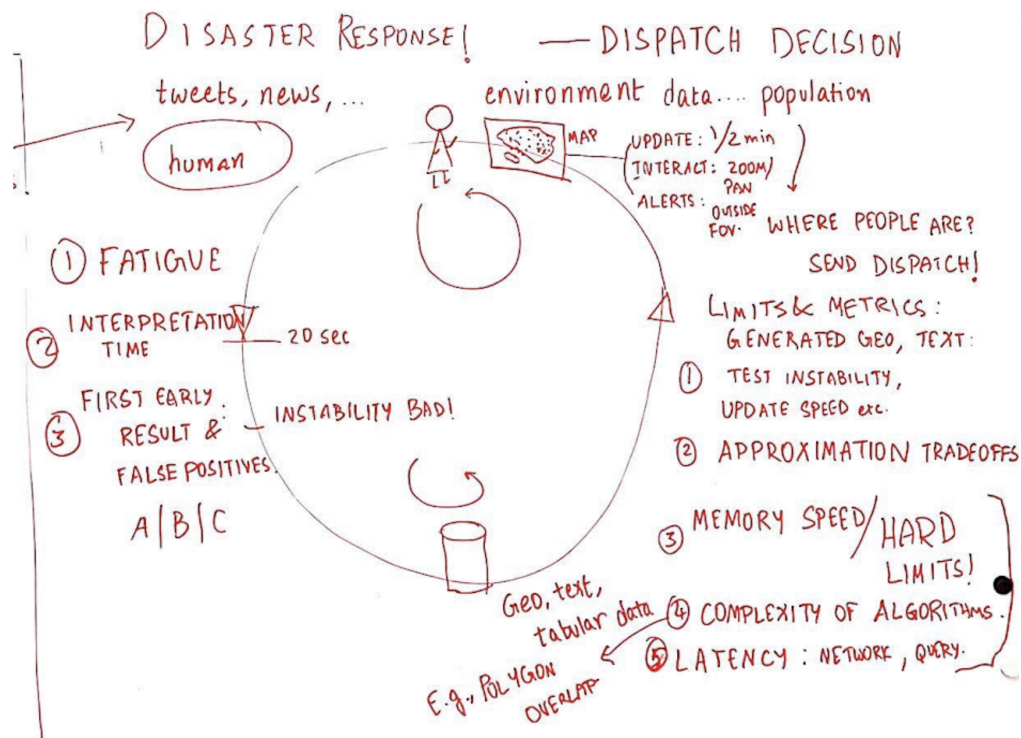 DISASTER RESPONSE! — DISPATCH DECISION
tweets, news, ...
human
environment data.... population
MAP
UPDATE: 1/2 min
INTERACT: ZOOM/
PAN
ALERTS: OUTSIDE
FOV.
WHERE PEOPLE ARE?
SEND DISPATCH!
① FATIGUE
② INTERPRETATION
TIME
20 sec
③ FIRST EARLY
RESULT &
FALSE POSITIVES.
INSTABILITY BAD!
A/B/C
LIMITS & METRICS:
GENERATED GEO, TEXT:
① TEST INSTABILITY,
UPDATE SPEED etc.
② APPROXIMATION TRADEOFFS
③ MEMORY SPEED/HARD
LIMITS!
④ COMPLEXITY OF ALGORITHMS.
⑤ LATENCY: NETWORK, QUERY.
Geo, text,
tabular data
E.g., POLYGON
OVERLAP